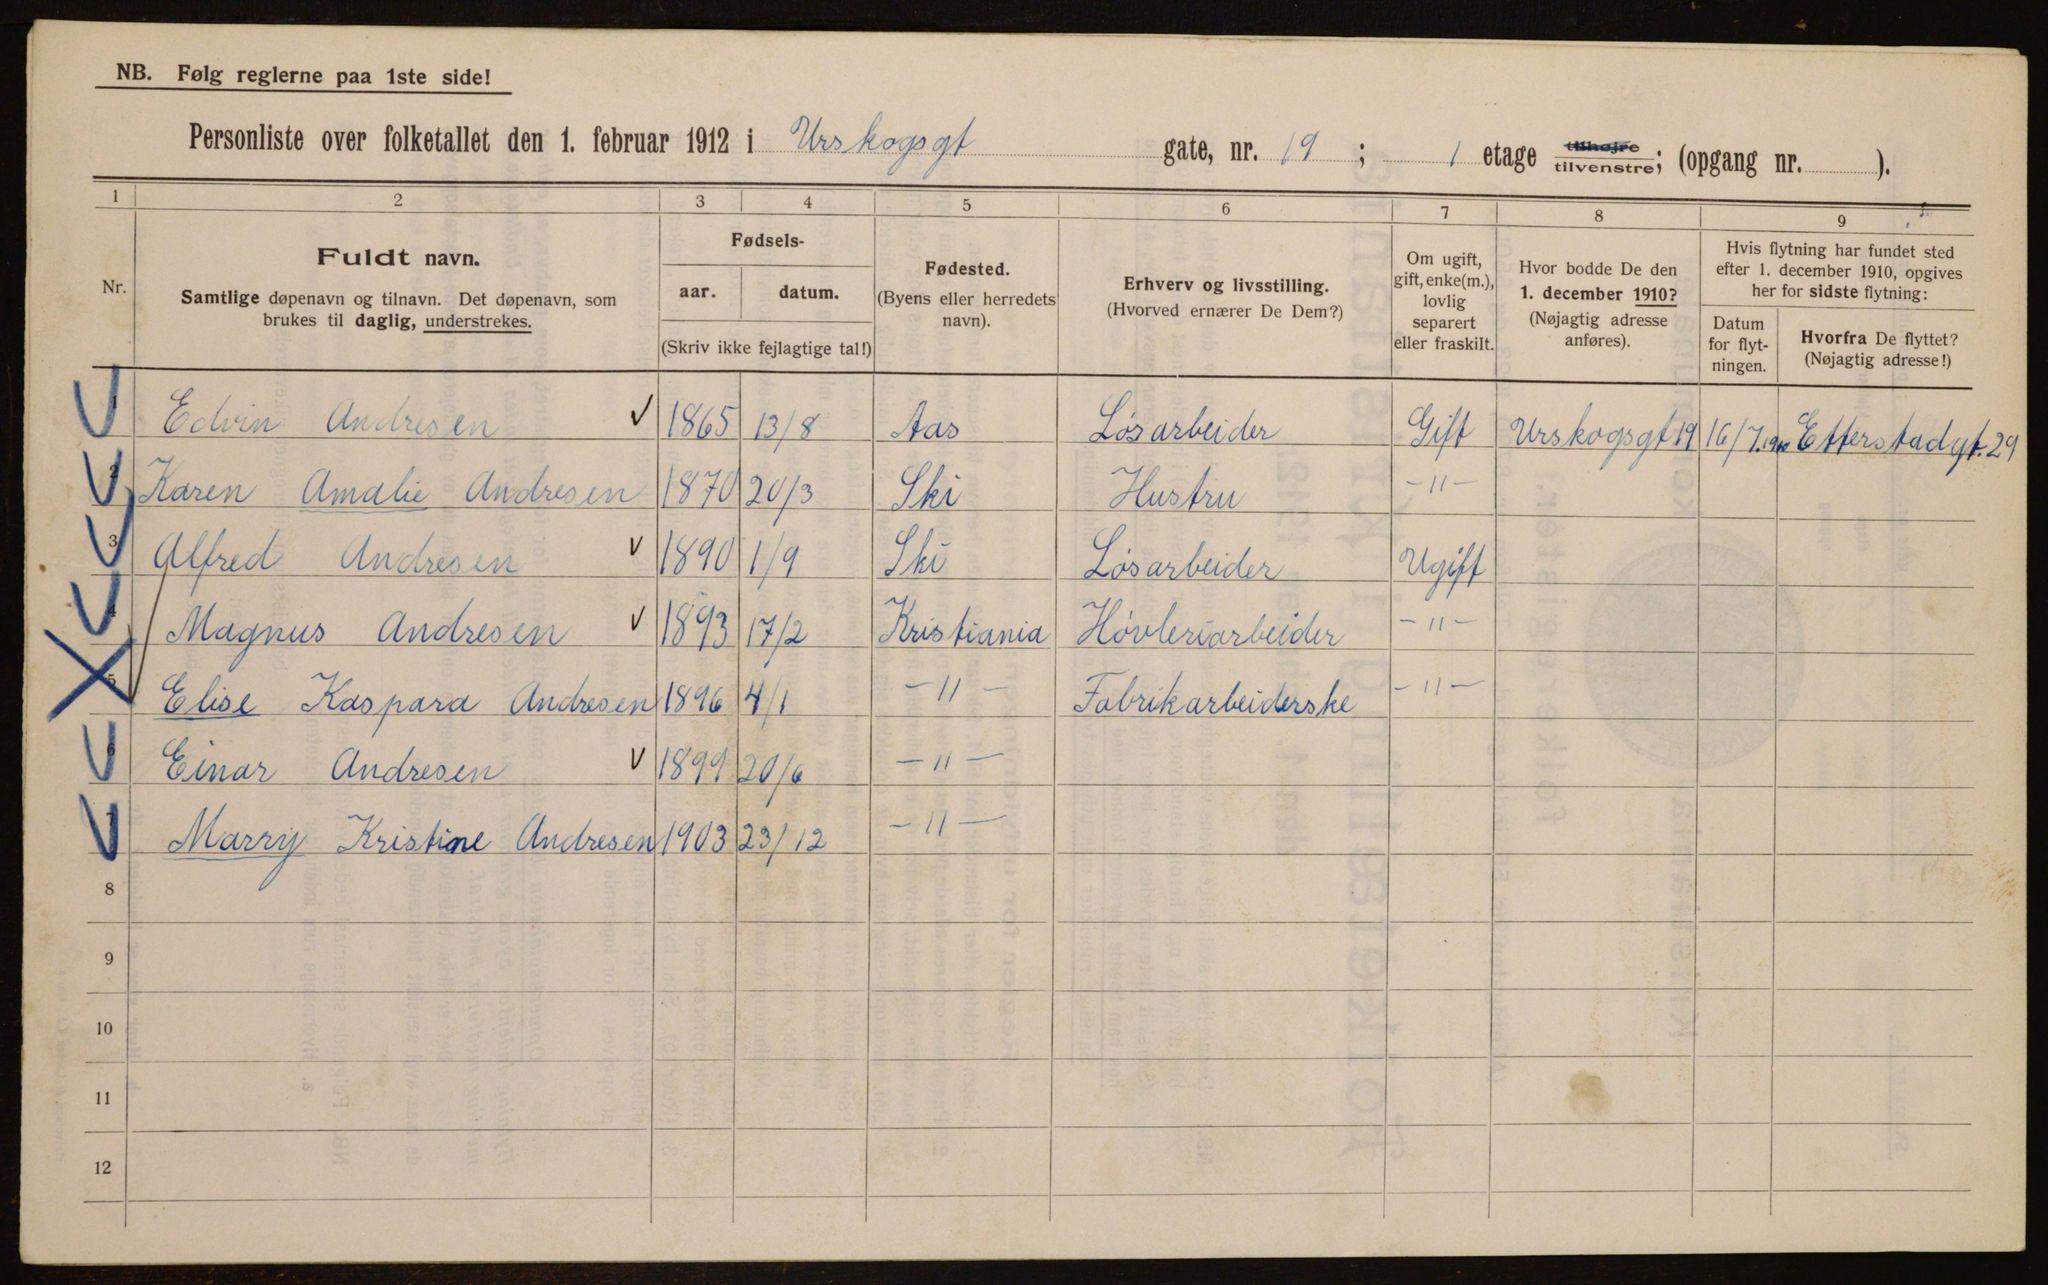 NB. Følg reglerne paa 1ste side!
Personliste over folketallet den 1. februar 1912 i Urskogsgt gate, nr. 19 ; 1 etage tilhøjre tilvenstre; (opgang nr. ).
1 2 3 4 5 6 7 8 9
Nr.
Fuldt navn.
Samtlige døpenavn og tilnavn. Det døpenavn, som
brukes til daglig, understrekes.
Fødsels-
aar. datum.
(Skriv ikke fejlagtige tal!)
Fødested.
(Byens eller herredets
navn).
Erhverv og livsstilling.
(Hvorved ernærer De Dem?)
Om ugift,
gift, enke(m.),
lovlig
separert
eller fraskilt.
Hvor bodde De den
1. december 1910?
(Nøjagtig adresse
anføres).
Hvis flytning har fundet sted
efter 1. december 1910, opgives
her for sidste flytning:
Datum
for flyt-
ningen.
Hvorfra De flyttet?
(Nøjagtig adresse!)
1 Edvin Andresen 1865 13/8 Aas Løsarbeider Gift Urskogsgt 19 16/7. Etterstadgt. 29
2 Karen Amalie Andresen 1870 20/3 Ski Hustru -"-
3 Alfred Andresen 1890 1/9 Ski Løsarbeider Ugift
4 Magnus Andresen 1893 17/2 Kristiania Høvleriarbeider -"-
5 Elise Kaspara Andresen 1896 4/1 -"- Fabrikarbeiderske -"-
6 Einar Andresen 1899 20/6 -"-
7 Marry Kristine Andresen 1903 23/12 -"-
8
9
10
11
12